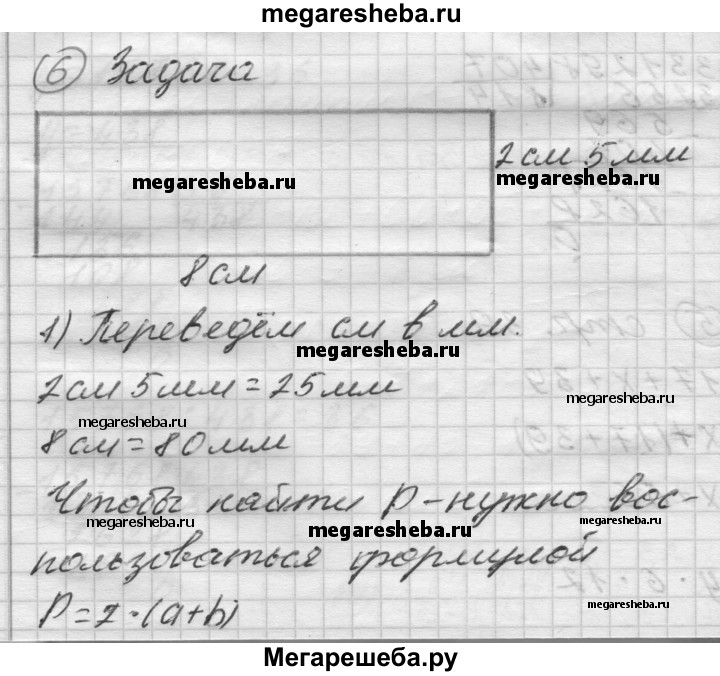 megaresheba.ru
6 Задача
2 см 5 мм
megaresheba.ru
megaresheba.ru
8 см
1) Переведём см в мм.
megaresheba.ru
2 см 5 мм = 25 мм
megaresheba.ru
megaresheba.ru
8 см = 80 мм
Чтобы найти P - нужно вос-
megaresheba.ru
megaresheba.ru
megaresheba.ru
пользоваться формулой
P = 2 · (a + b)
megaresheba.ru
Мегарешеба.ру